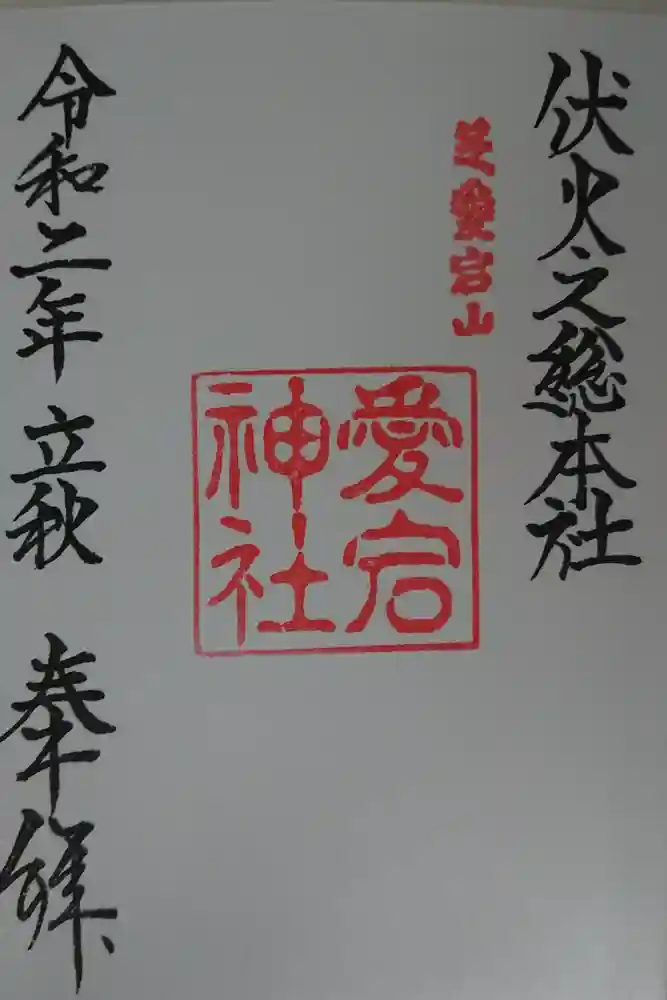 伏火之総本社
芝愛宕山
愛宕
神社
令和二年 立秋 奉拝